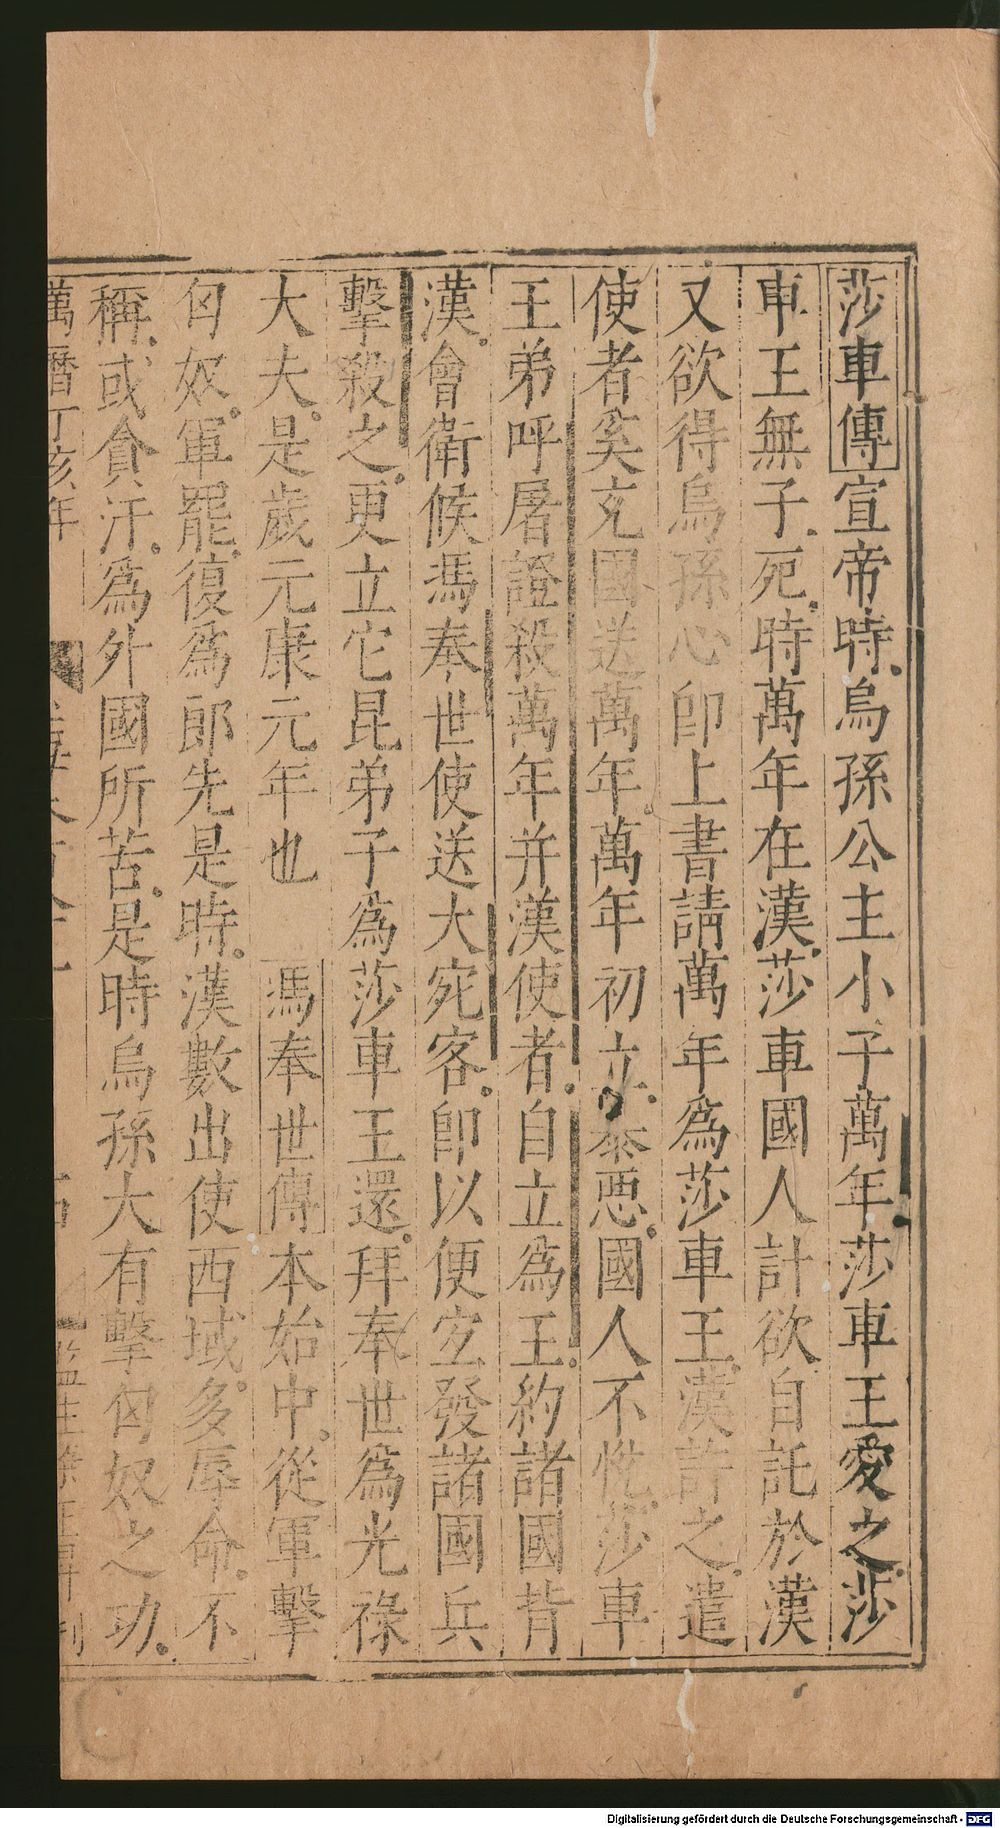 莎車傳宣帝時烏孫公主小子萬年莎車王愛之莎
車王無子死時萬年在漢莎車國人計欲自託於漢
又欲得烏孫心卽上書請萬年爲莎車王漢許之遣
使者奚充國送萬年萬年初立暴惡國人不悅莎車
王弟呼屠證殺萬年并漢使者自立爲王約諸國背
漢會衛候馮奉世使送大宛客卽以便宜發諸國兵
擊殺之更立它昆弟子爲莎車王還拜奉世爲光祿
大夫是歲元康元年也 馮奉世傳本始中從軍擊
匈奴軍罷復爲郎先是時漢數出使西域多辱命不
稱或貪汙爲外國所苦是時烏孫大有擊匈奴之功
萬曆丁亥年 刊
Digitalisierung gefördert durch die Deutsche Forschungsgemeinschaft - DFG